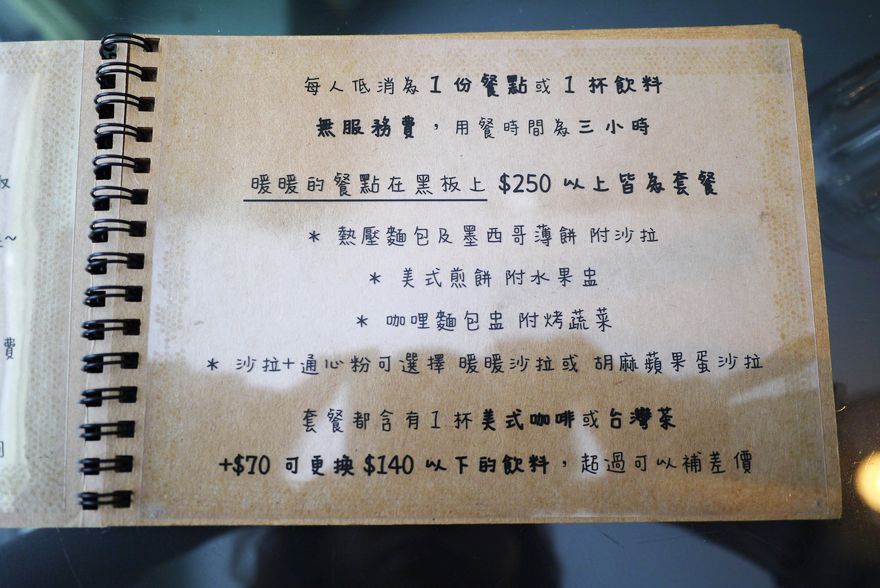 每人低消為1份餐點或1杯飲料
無服務費，用餐時間為三小時
暖暖的餐點在黑板上 $250 以上皆為套餐
* 熱壓麵包及墨西哥薄餅 附沙拉
* 美式煎餅 附水果盅
* 咖哩麵包盅 附烤蔬菜
* 沙拉+通心粉可選擇 暖暖沙拉或 胡麻蘋果蛋沙拉
套餐都含有1杯美式咖啡或台灣茶
+$70 可更換 $140 以下的飲料，超過可以補差價
費